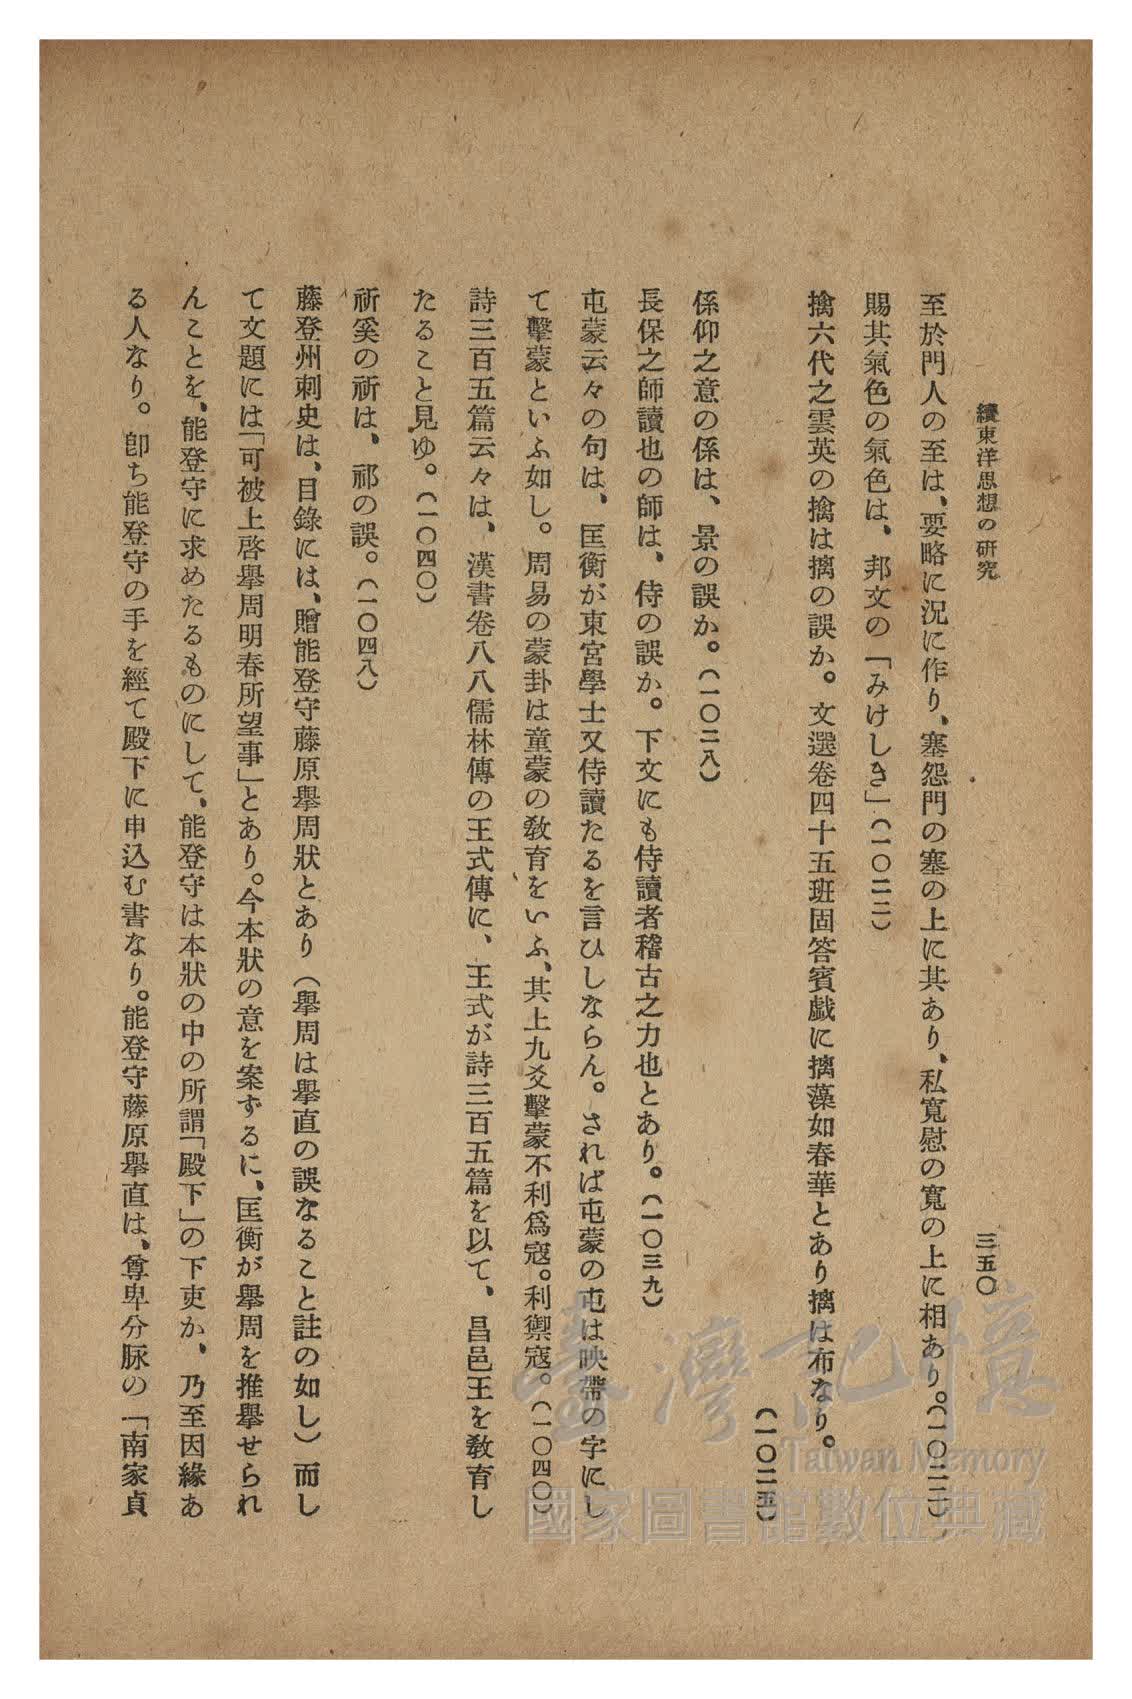 續東洋思想の硏究
三五〇
至於門人の至は、要略に況に作り、塞怨門の塞の上に其あり、私寬慰の寬の上に相あり。(一〇二一)
賜其氣色の氣色は、邦文の「みけしき」(一〇二二)
擒六代之雲英の擒は摛の誤か。文選卷四十五班固答賓戲に摛藻如春華とあり摛は布なり。
(一〇二五)
係仰之意の係は、景の誤か。(一〇二八)
長保之師讀也の師は、侍の誤か。下文にも侍讀者稽古之力也とあり。(一〇三九)
屯蒙云々の句は、匡衡が東宮學士又侍讀たるを言ひしならん。されば屯蒙の屯は映帶の字にし
て擊蒙といふ如し。周易の蒙卦は童蒙の敎育をいふ、其上九爻擊蒙不利爲寇。利禦寇。(一〇四〇)
詩三百五篇云々は、漢書卷八八儒林傳の王式傳に、王式が詩三百五篇を以て、昌邑王を敎育し
たること見ゆ。(一〇四〇)
祈奚の祈は、祁の誤。(一〇四八)
藤登州刺史は、目錄には、贈能登守藤原擧周狀とあり(擧周は擧直の誤なること註の如し)而し
て文題には「可被上啓擧周明春所望事」とあり。今本狀の意を案ずるに、匡衡が擧周を推擧せられ
んことを、能登守に求めたるものにして、能登守は本狀の中の所謂「殿下」の下吏か、乃至因緣あ
る人なり。卽ち能登守の手を經て殿下に申込む書なり。能登守藤原擧直は、尊卑分脈の「南家貞
臺灣記憶
Taiwan Memory
國家圖書館數位典藏